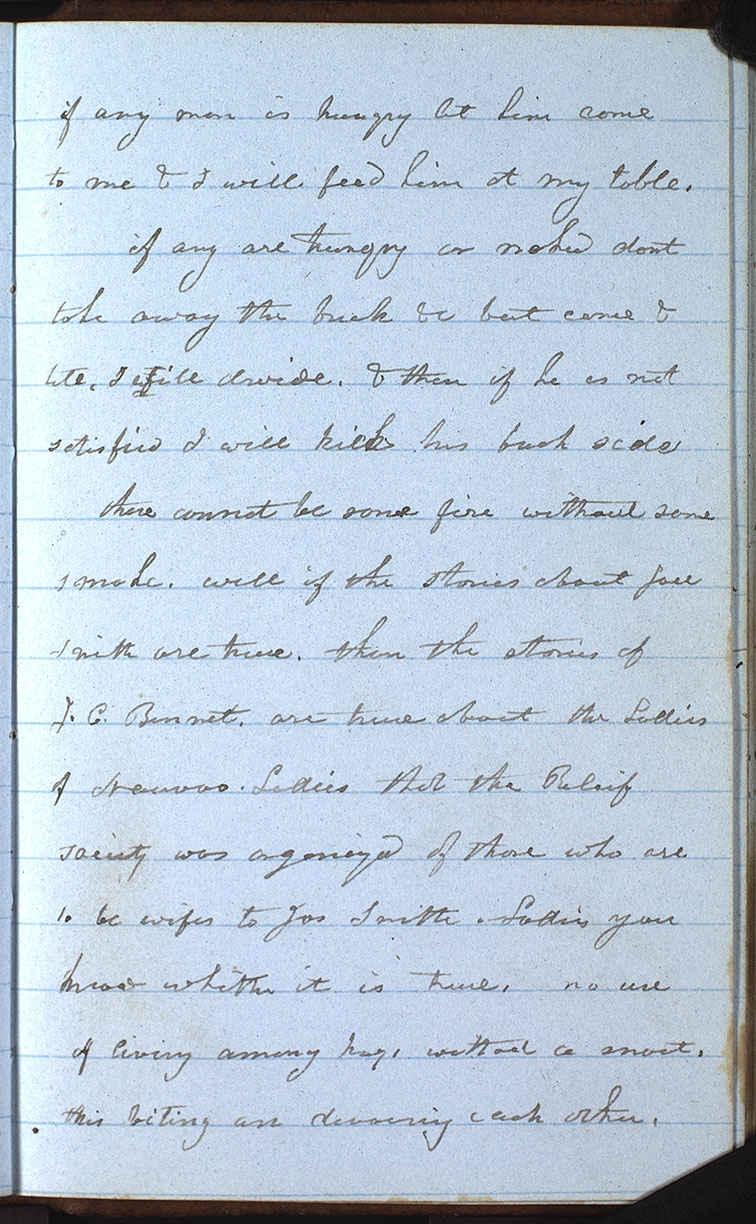 if any man is hungry let him come
to me & I will feed him at my table.
if any are hungry or naked dont
take away the brick &c but come &
tite, I will divide. & then if he is not
satisfied I will kick his back side
there cannot be some fire without some
smoke. well if the stories about Jose
Smith are true. then the stories of
J. C. Bennet. are true about the Ladies
of Nauvoo. Ladies that the Releif
society was organized of those who are
to be wifes to Jos Smith. Ladies you
know whither it is true. no use
of living among hogs without a snout.
this biting an devouring each other.